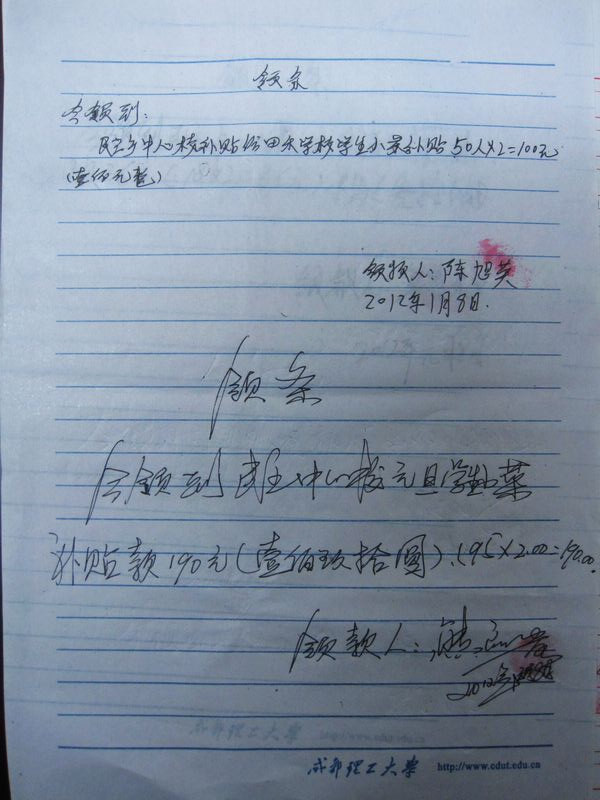 领条
今领到:
民主乡中心校补贴 田 学校学生小菜补贴50人×2=100元
(壹佰元整)
领款人:陈旭英
2012年1月8日.
领条
今领到民主中心校元旦学生小菜
补贴款190元(壹佰玖拾圆).(95×2.00=190.00.
领款人:熊
2012年
成都理工大学 http://www.cdut.edu.cn